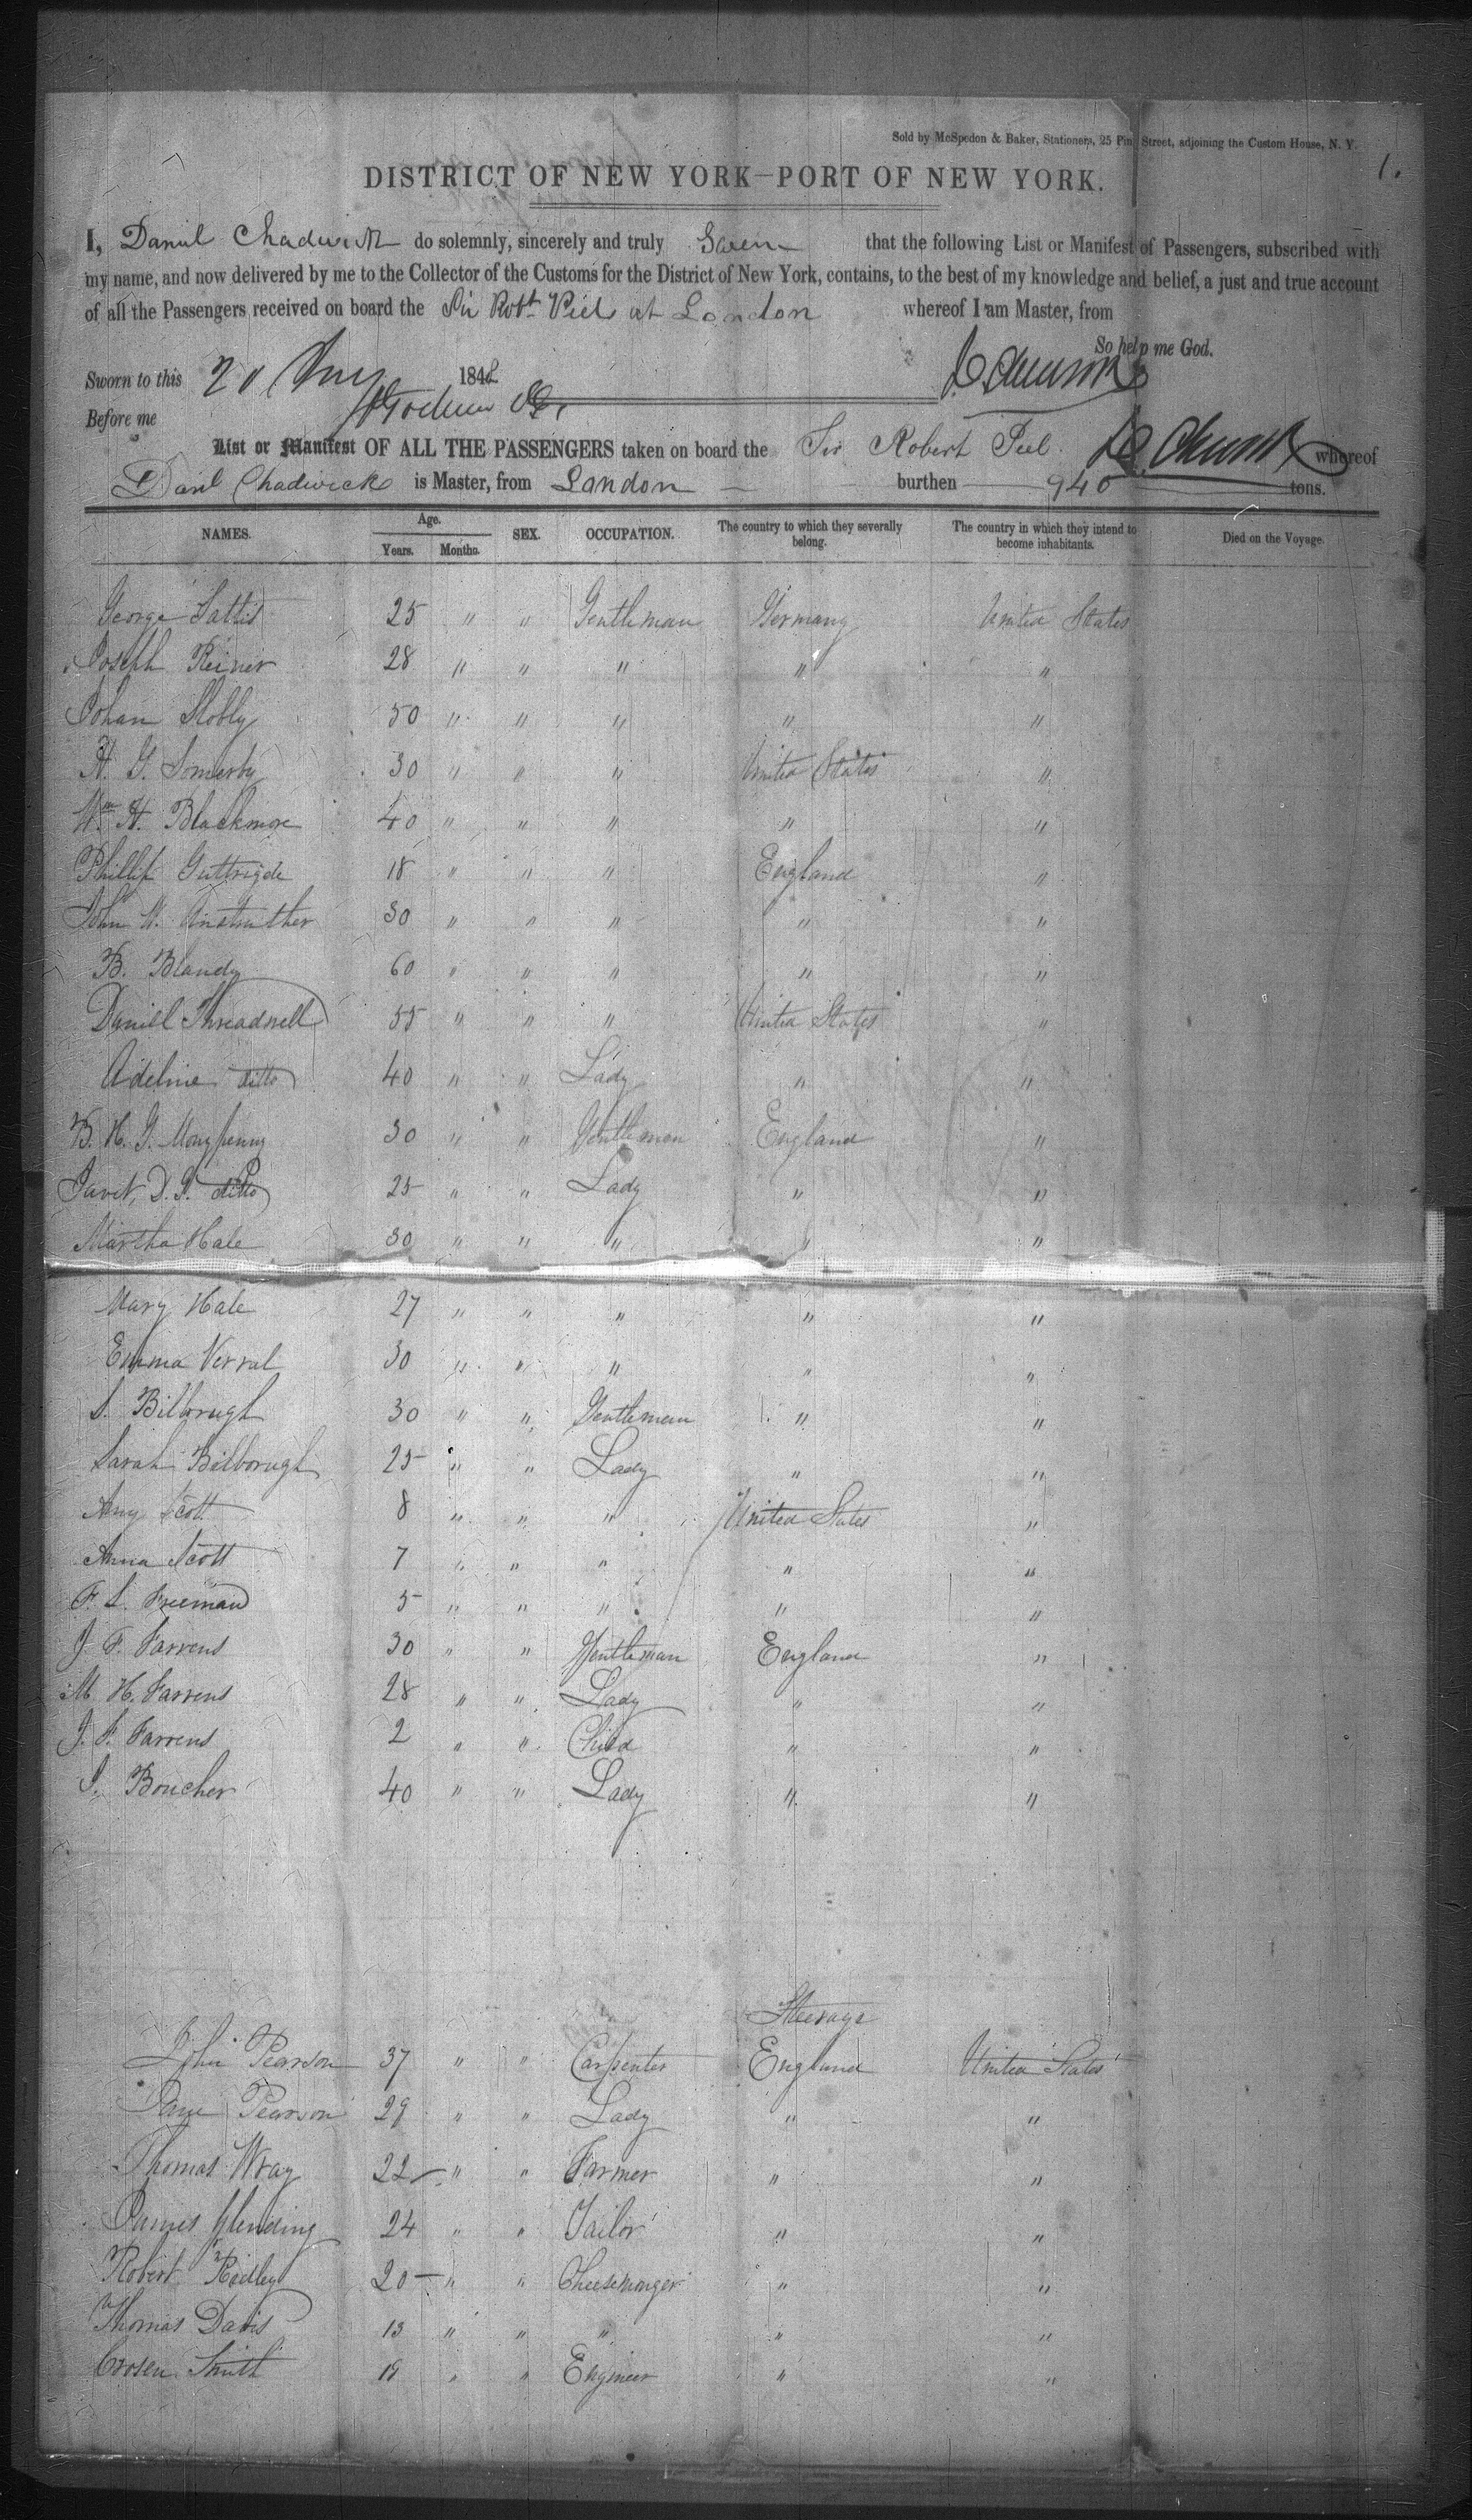 Sold by McSpedon & Baker, Stationers, 25 Pine Street, adjoining the Custom House, N. Y.
1.
DISTRICT OF NEW YORK—PORT OF NEW YORK.
I, Daniel Chadwick do solemnly, sincerely and truly Swear that the following List or Manifest of Passengers, subscribed with
my name, and now delivered by me to the Collector of the Customs for the District of New York, contains, to the best of my knowledge and belief, a just and true account
of all the Passengers received on board the Sir Robt. Peel at London whereof I am Master, from
So help me God.
Sworn to this 20 184
Before me
List or Manifest OF ALL THE PASSENGERS taken on board the Sir Robert Peel whereof
Danl Chadwick is Master, from London burthen 940 tons.
NAMES. Age. Years. Months. SEX. OCCUPATION. The country to which they severally belong. The country in which they intend to become inhabitants. Died on the Voyage.
George 25 " " Gentleman Germany United States
Joseph Reiner 28 " " " " "
Johan 50 " " " " "
H. G. Somerby 30 " " " United States "
Wm H. Blackmore 40 " " " " "
Phillip Guttrigde 18 " " " England "
John W. Anstruther 30 " " " " "
B. Blandy 60 " " " " "
Daniel Threadwell 55 " " " United States "
Adeline ditto 40 " " Lady " "
B. H. G. Monypenny 30 " " Gentleman England "
D. G. ditto 25 " " Lady " "
Martha Hale 30 " " " " "
Mary Hale 27 " " " " "
Emma Verral 30 " " " " "
S. Bilbrough 30 " " Gentleman " "
Sarah Bilborugh 25 " " Lady " "
Amy Scott 8 " " " United States "
Anna Scott 7 " " " " "
F. S. Freeman 5 " " " " "
J. F. Farrens 30 " " Gentleman England "
M. H. Farrens 28 " " Lady " "
J. F. Farrens 2 " " Child " "
S. Boucher 40 " " Lady " "
Steerage
John Pearson 37 " " Carpenter England United States
Jane Pearson 29 " " Lady " "
Thomas Wray 22 " " Farmer " "
James Glending 24 " " Tailor " "
Robert Radley 20 " " Cheesemonger " "
Thomas Davis 13 " " " " "
Smith 19 " " Engineer " "